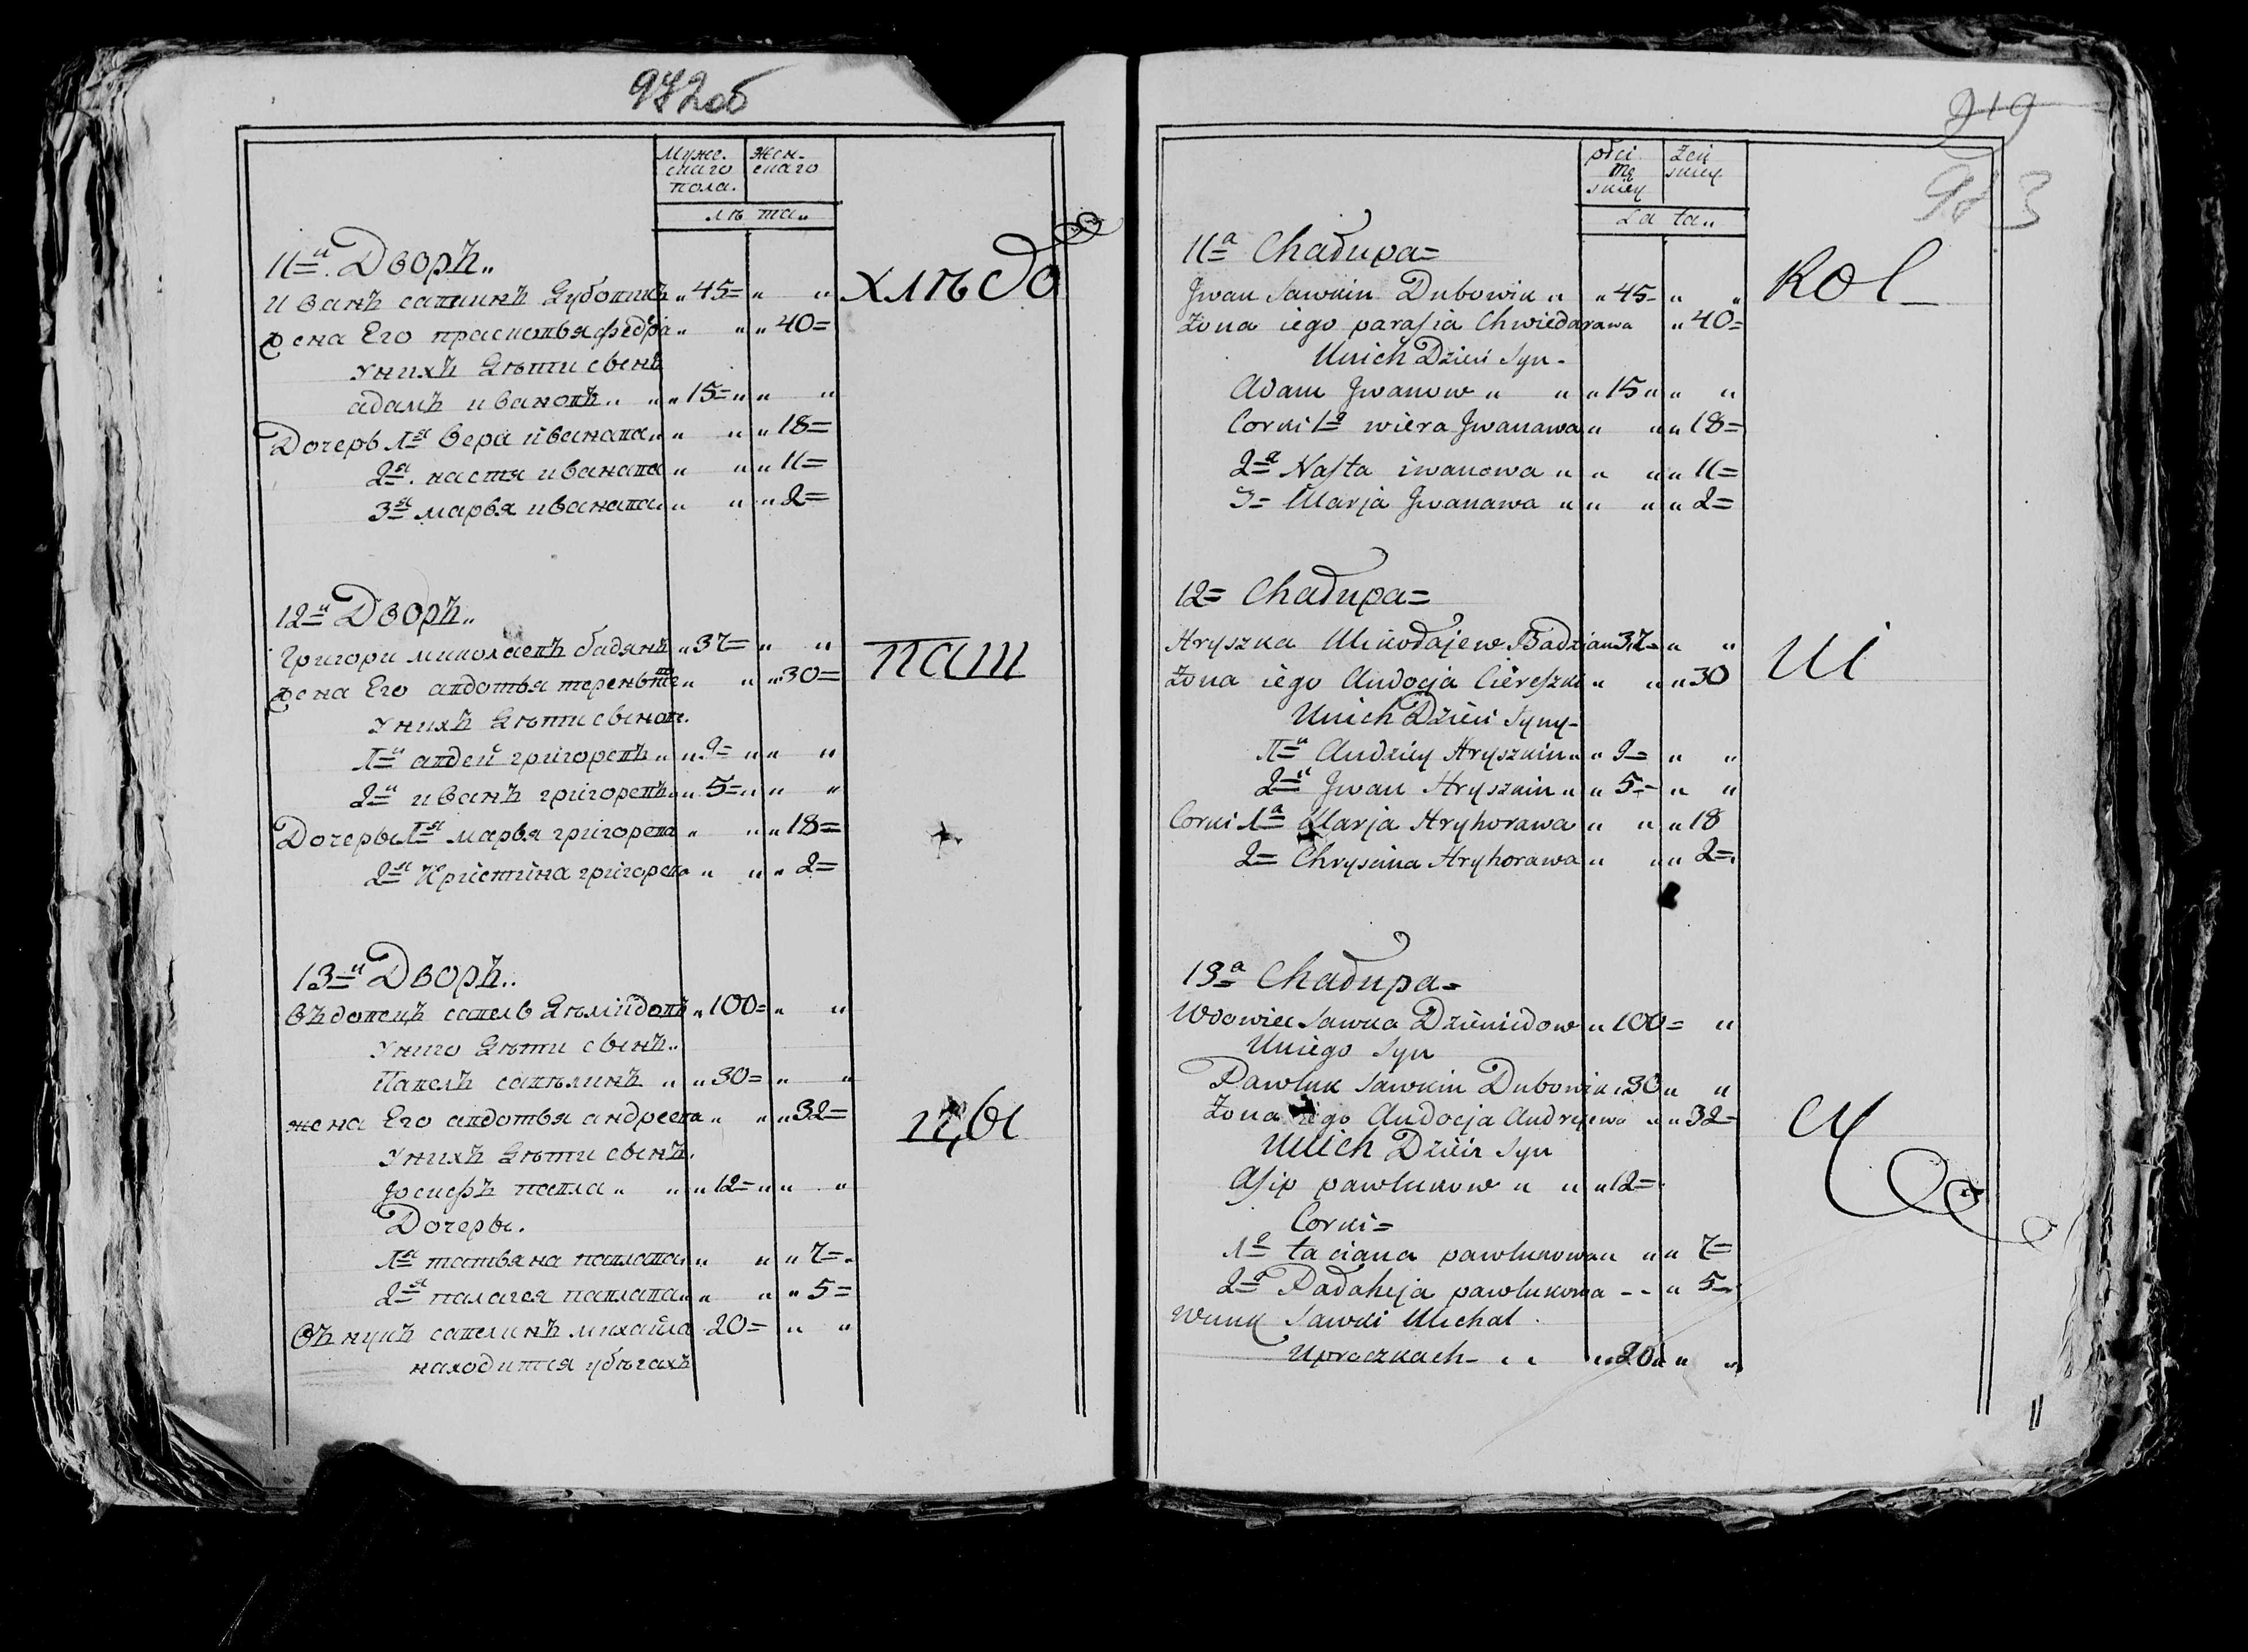 972об
Муже-
скаго
пола.
Жен-
скаго
лѣта„
11=й Дворъ„
Иванъ сапкинъ Дубопикъ „ 45= „ „
жена Его праскопья федра „ „ „ 40=
Унихъ Дѣти сынъ
адамъ иванопъ „ „ „ 15= „ „ „
Дочерь 1=я вера иванапа „ „ „ „ 18=
2=я настя иванапа „ „ „ 11=
3=я марья иванапа „ „ „ 2=
хлѣбо
12=й Дворъ„
Григори миколаепъ бадянъ „ 37= „ „
жена Его апдотья тереньте „ „ „ 30=
Унихъ Дѣти сыноп.
1=й апдей григорепъ „ „ 9= „ „ „
2=й иванъ григорепъ „ „ 5= „ „ „
Дочеры 1=я марья григорепа „ „ „ 18=
2=я Кристина григорепа „ „ „ 2=
паш
13=й Дворъ„
Въдопецъ сапель Дѣмидопъ „ 100= „ „
Униго Дѣти сынъ„
Папелъ сапѣлинъ „ „ 30= „ „
жена Его апдотья андреепа „ „ „ 32=
Унихъ Дѣти сынъ.
Iосифъ папла „ „ „ 12= „ „ „
Дочеры.
1=я татьяна паплапа „ „ „ „ 7=
2=я палагея паплапа „ „ „ „ 5=
Въ нукъ сапелинъ михайла 20= „ „
находится убѣгахъ
цы
919
983
płci
mę
skiey
żeń
skiey
La ta„
11=a Chałupa=
Jwan Sawkin Dubowik „ „ 45- „ „
Żona iego parasia Chwiedarawa „ 40=
Unich Dzieci Syn-
Adam Jwanow „ „ „ 15 „ „ „
Corki 1=a wiera Jwanawa „ „ „ 18=
2=a Nasta iwanowa „ „ „ „ 11=
3= Marja Jwanawa „ „ „ „ 2=
Rol-
12= Chałupa=
Hryszka Mikołajew Badzian 37= „ „
Żona iego Audocja Ciereszki „ „ „ 30
Unich Dzieci Syny-
1=й Audziey Hryszkin „ „ 9= „ „
2=й Jwan Hryszkin „ „ 5- „ „
Corki 1=a Marja Hryhorawa „ „ „ 18
2= Chryscina Hryhorawa „ „ „ 2=
ni
13=a Chałupa=
Wdowiec Sawka Dziemidow „ 100= „
Uniego Syn
Pawluk Sawkin Dubowik „ 30 „ „
Żona iego Audocja Andrejewa „ „ 32=
Unich Dzieci Syn
Asip pawlukow „ „ „ 12=
Corki=
1=a taciana pawlukowa „ „ „ 7=
2=a Pałaheja pawlukowa - - „ 5-
Wnuk Sawki Michał
Uproczkach- „ „ „ 20 „ „ „
cy